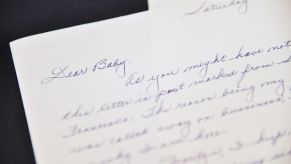 Saturday
Dear Baby.
As you might have not
this letter is post market from S
Francisco. The reason being my
was called away on bussiness,
why I am here.
I hope